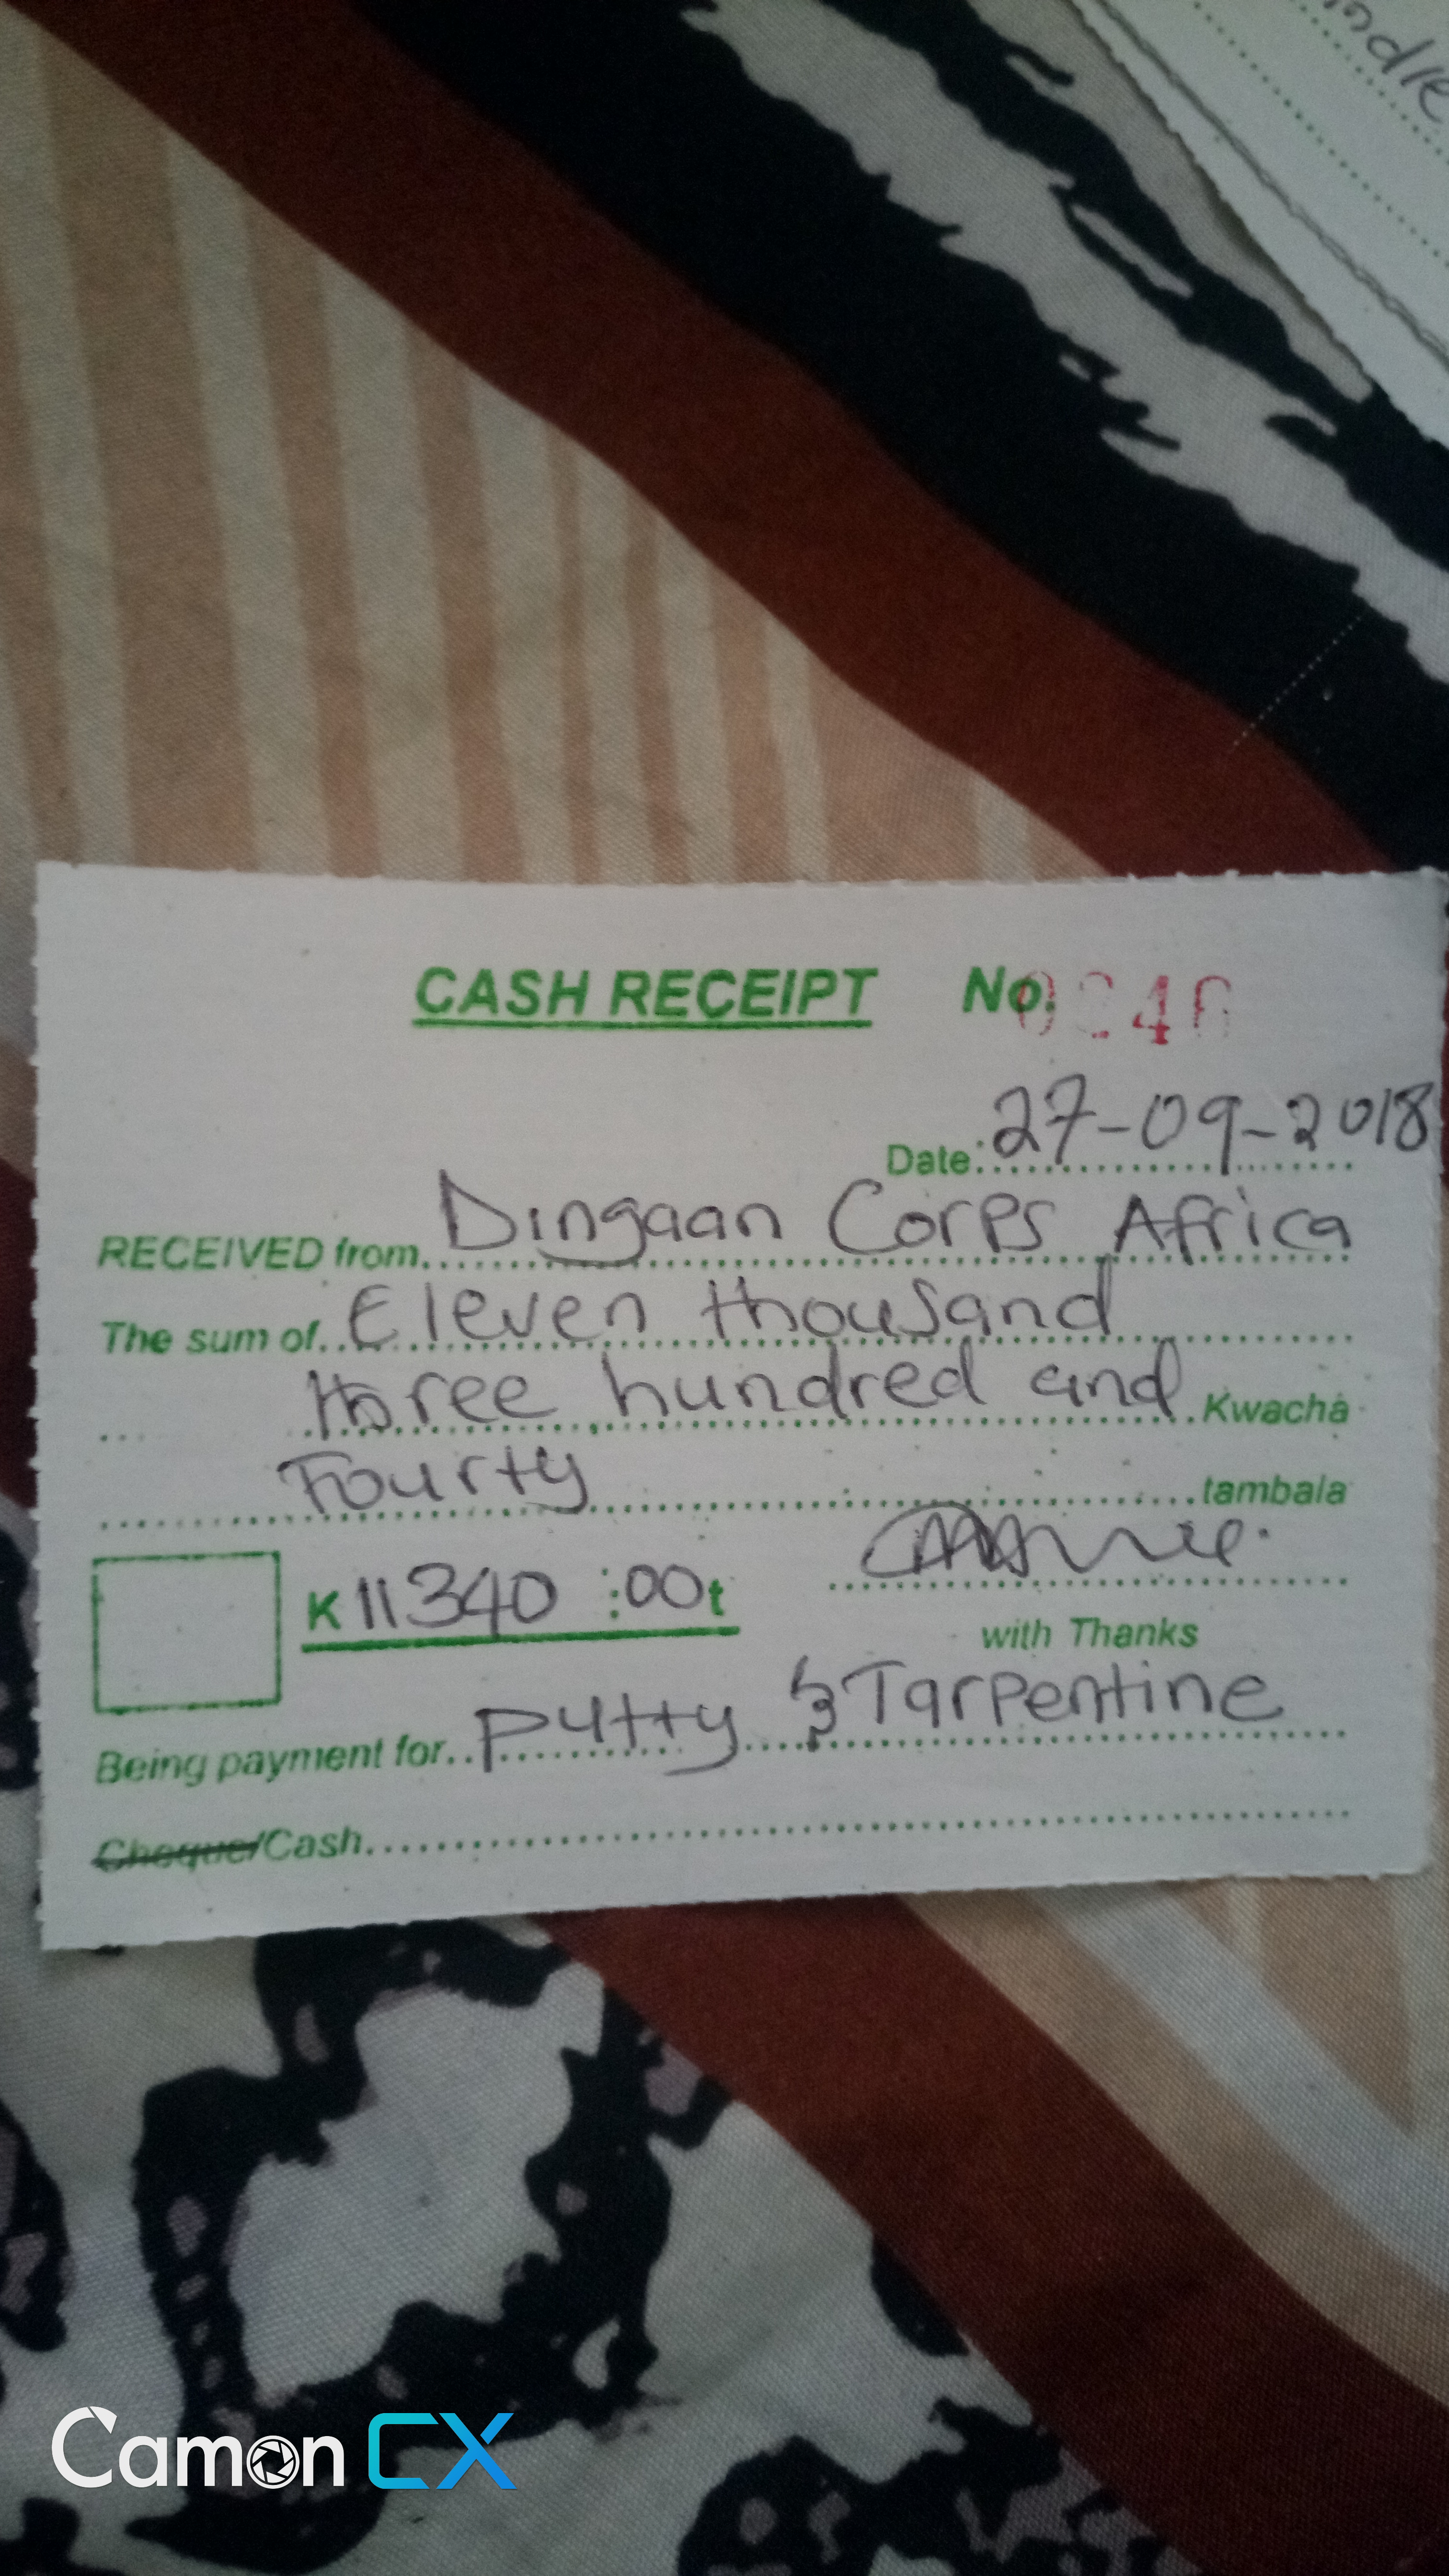 CASH RECEIPT No.
Date: 27-09-2018
RECEIVED from Dingaan Corps Africa
The sum of Eleven thousand
three hundred and Kwacha
Fourty tambala
K 11340 :00t
with Thanks
Being payment for putty & Tarpentine
Cheque/Cash
Camon CX